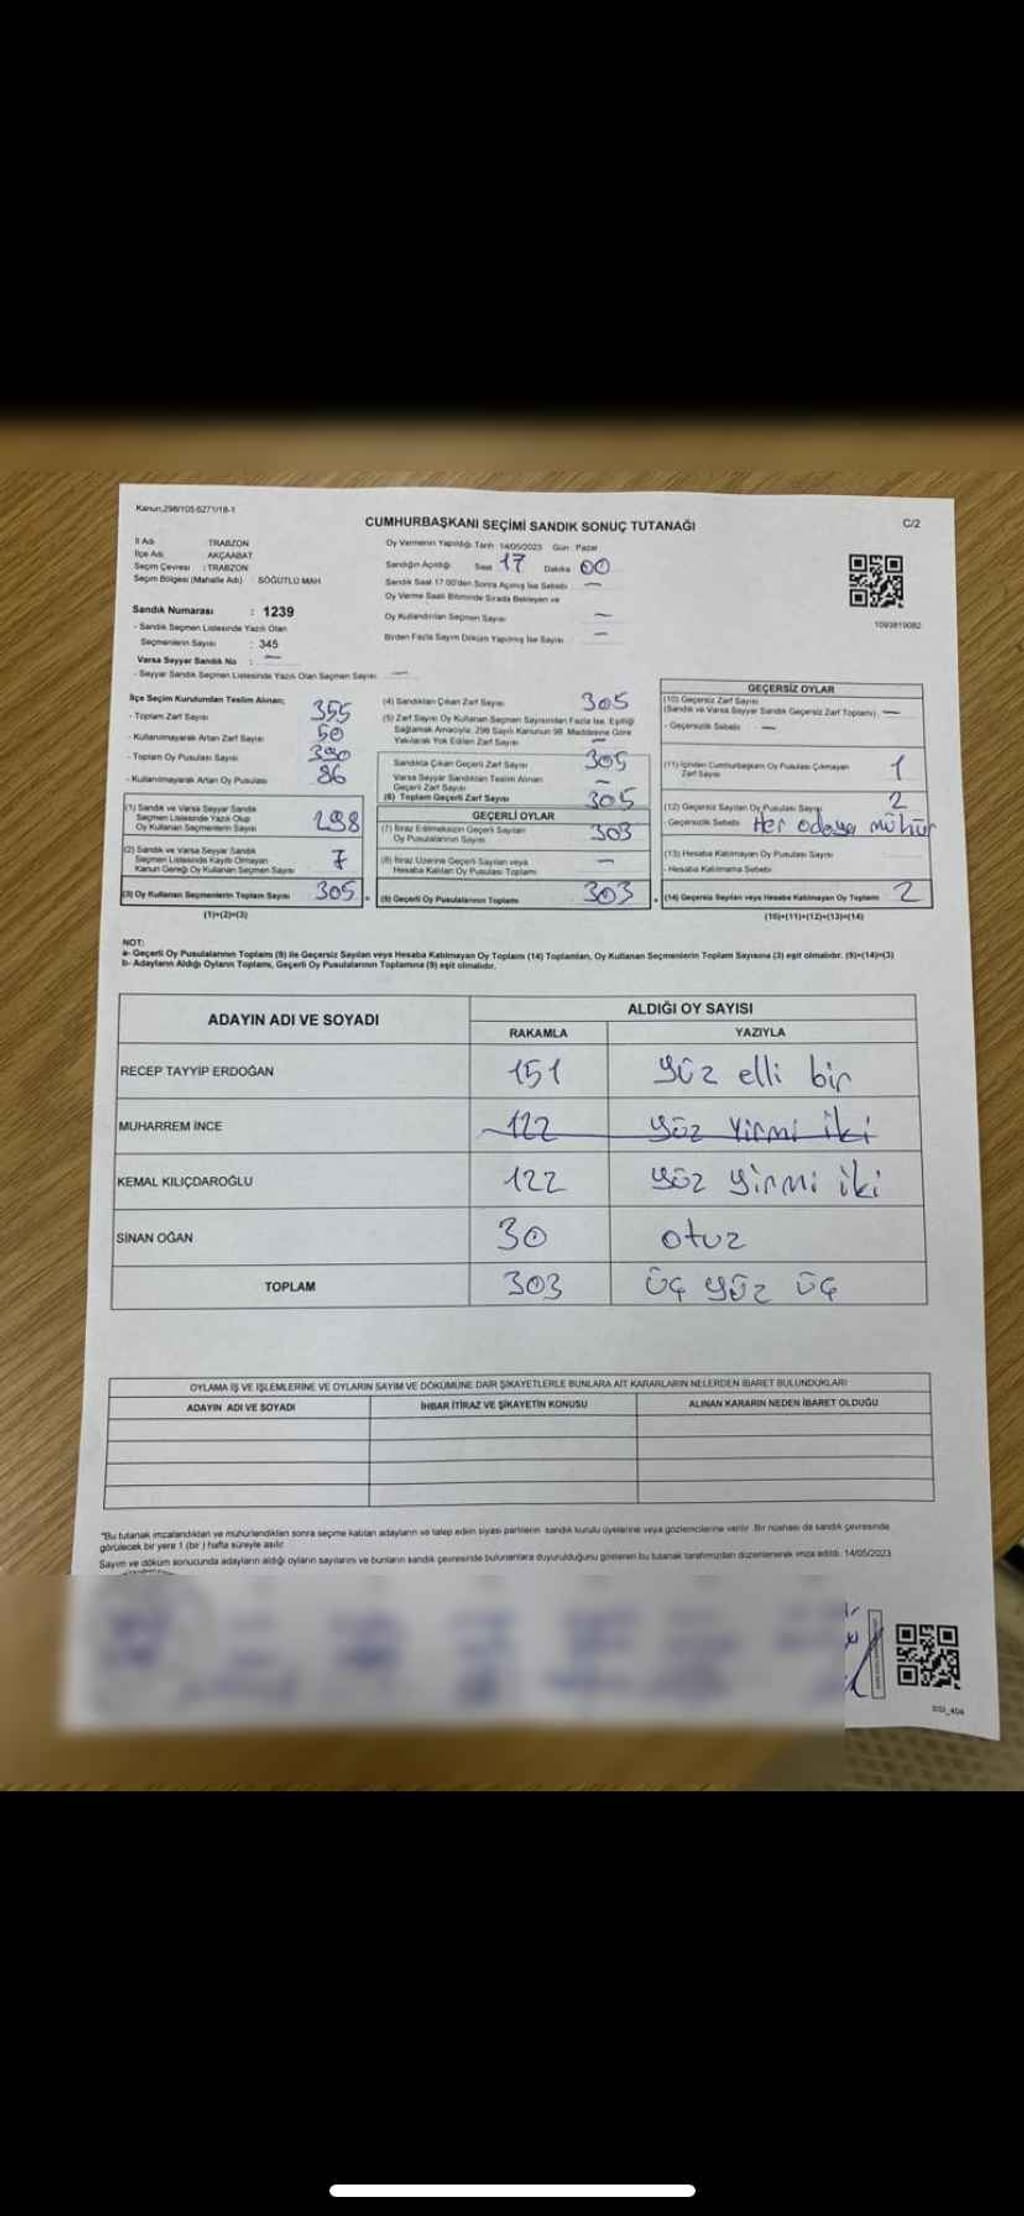 Kanun,298/105-6271/18-1
CUMHURBAŞKANI SEÇİMİ SANDIK SONUÇ TUTANAĞI
C/2
İl Adı TRABZON
İlçe Adı AKÇAABAT
Seçim Çevresi : TRABZON
Seçim Bölgesi (Mahalle Adı) SÖĞÜTLÜ MAH
Oy Vermenin Yapıldığı Tarih 14/05/2023 Gün Pazar
Sandığın Açıldığı Saat 17 Dakika 00
Sandık Saat 17.00'den Sonra Açılmış İse Sebebi —
Oy Verme Saati Bitiminde Sırada Bekleyen ve
Oy Kullandırılan Seçmen Sayısı —
Birden Fazla Sayım Döküm Yapılmış İse Sayısı —
1093819082
Sandık Numarası : 1239
- Sandık Seçmen Listesinde Yazılı Olan
Seçmenlerin Sayısı : 345
Varsa Seyyar Sandık No : —
- Seyyar Sandık Seçmen Listesinde Yazılı Olan Seçmen Sayısı —
İlçe Seçim Kurulundan Teslim Alınan;
- Toplam Zarf Sayısı 355
- Kullanılmayarak Artan Zarf Sayısı 50
- Toplam Oy Pusulası Sayısı 390
- Kullanılmayarak Artan Oy Pusulası 86
(1) Sandık ve Varsa Seyyar Sandık
Seçmen Listesinde Yazılı Olup
Oy Kullanan Seçmenlerin Sayısı 298
(2) Sandık ve Varsa Seyyar Sandık
Seçmen Listesinde Kayıtlı Olmayan
Kanun Gereği Oy Kullanan Seçmen Sayısı 7
(3) Oy Kullanan Seçmenlerin Toplam Sayısı 305
(1)+(2)=(3)
(4) Sandıktan Çıkan Zarf Sayısı 305
(5) Zarf Sayısı Oy Kullanan Seçmen Sayısından Fazla İse, Eşitliği
Sağlamak Amacıyla, 298 Sayılı Kanunun 98. Maddesine Göre
Yakılarak Yok Edilen Zarf Sayısı —
Sandıkta Çıkan Geçerli Zarf Sayısı 305
Varsa Seyyar Sandıktan Teslim Alınan
Geçerli Zarf Sayısı —
(6) Toplam Geçerli Zarf Sayısı 305
GEÇERLİ OYLAR
(7) İtiraz Edilmeksizin Geçerli Sayılan
Oy Pusulalarının Sayısı 303
(8) İtiraz Üzerine Geçerli Sayılan veya
Hesaba Katılan Oy Pusulası Toplamı —
(9) Geçerli Oy Pusulalarının Toplamı 303
GEÇERSİZ OYLAR
(10) Geçersiz Zarf Sayısı
(Sandık ve Varsa Seyyar Sandık Geçersiz Zarf Toplamı) —
- Geçersizlik Sebebi —
(11) İçinden Cumhurbaşkanı Oy Pusulası Çıkmayan
Zarf Sayısı 1
(12) Geçersiz Sayılan Oy Pusulası Sayısı 2
- Geçersizlik Sebebi Her odaya mühür
(13) Hesaba Katılmayan Oy Pusulası Sayısı
- Hesaba Katılmama Sebebi
(14) Geçersiz Sayılan veya Hesaba Katılmayan Oy Toplamı 2
(10)+(11)+(12)+(13)=(14)
NOT:
a- Geçerli Oy Pusulalarının Toplamı (9) ile Geçersiz Sayılan veya Hesaba Katılmayan Oy Toplamı (14) Toplamları, Oy Kullanan Seçmenlerin Toplam Sayısına (3) eşit olmalıdır. (9)+(14)=(3)
b- Adayların Aldığı Oyların Toplamı, Geçerli Oy Pusulalarının Toplamına (9) eşit olmalıdır.
ADAYIN ADI VE SOYADI
ALDIĞI OY SAYISI
RAKAMLA YAZIYLA
RECEP TAYYİP ERDOĞAN 151 yüz elli bir
MUHARREM İNCE 122 yüz yirmi iki
KEMAL KILIÇDAROĞLU 122 yüz yirmi iki
SİNAN OĞAN 30 otuz
TOPLAM 303 üç yüz üç
OYLAMA İŞ VE İŞLEMLERİNE VE OYLARIN SAYIM VE DÖKÜMÜNE DAİR ŞİKAYETLERLE BUNLARA AİT KARARLARIN NELERDEN İBARET BULUNDUKLARI
ADAYIN ADI VE SOYADI İHBAR İTİRAZ VE ŞİKAYETİN KONUSU ALINAN KARARIN NEDEN İBARET OLDUĞU
"Bu tutanak imzalandıktan ve mühürlendikten sonra seçime katılan adayların ve talep eden siyasi partilerin sandık kurulu üyelerine veya gözlemcilerine verilir. Bir nüshası da sandık çevresinde
görülecek bir yere 1 (bir) hafta süreyle asılır.
Sayım ve döküm sonucunda adayların aldığı oyların sayılarını ve bunların sandık çevresinde bulunanlara duyurulduğunu gösteren bu tutanak tarafımızdan düzenlenerek imza edildi. 14/05/2023